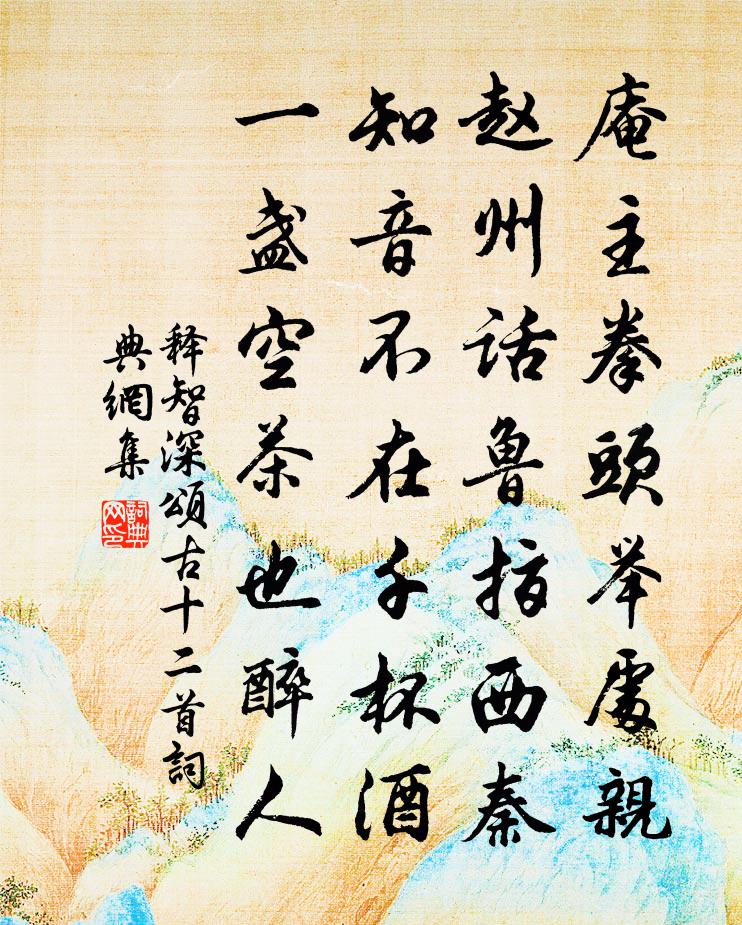 庵主拳頭举處親
赵州话鲁指西秦
知音不在千杯酒
一盏空茶也醉人
释智深頌古十二首詞
典網集
詞典
网印